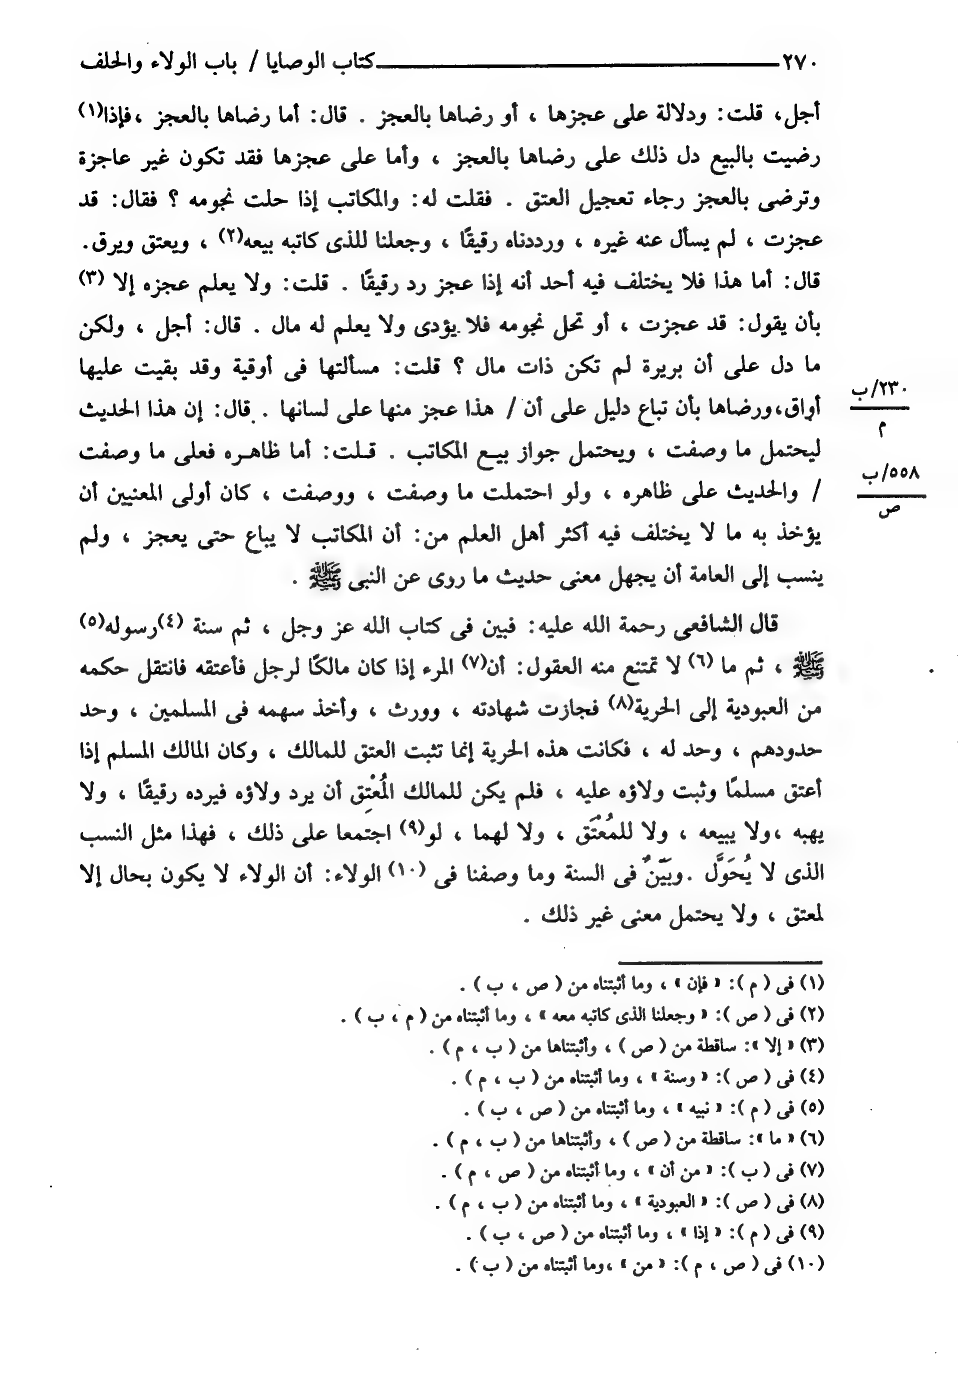 ٢٧٠ ــــــــــــــــــــ كتاب الوصايا / باب الولاء والحلف
أجل، قلت: ودلالة على عجزها ، أو رضاها بالعجز . قال: أما رضاها بالعجز ،فإذا(١)
رضيت بالبيع دل ذلك على رضاها بالعجز ، وأما على عجزها فقد تكون غير عاجزة
وترضى بالعجز رجاء تعجيل العتق . فقلت له: والمكاتب إذا حلت نجومه ؟ فقال: قد
عجزت ، لم يسأل عنه غيره ، ورددناه رقيقًا ، وجعلنا للذى كاتبه بيعه(٢) ، ويعتق ويرق.
قال: أما هذا فلا يختلف فيه أحد أنه إذا عجز رد رقيقًا . قلت: ولا يعلم عجزه إلا (٣)
بأن يقول: قد عجزت ، أو تحل نجومه فلا يؤدى ولا يعلم له مال . قال: أجل ، ولكن
ما دل على أن بريرة لم تكن ذات مال ؟ قلت: مسألتها فى أوقية وقد بقيت عليها
أواق،ورضاها بأن تباع دليل على أن / هذا عجز منها على لسانها . قال: إن هذا الحديث
٢٣٠/ب
م
ليحتمل ما وصفت ، ويحتمل جواز بيع المكاتب . قلت: أما ظاهره فعلى ما وصفت
٥٥٨/ب
ص
/ والحديث على ظاهره ، ولو احتملت ما وصفت ، ووصفت ، كان أولى المعنيين أن
يؤخذ به ما لا يختلف فيه أكثر أهل العلم من: أن المكاتب لا يباع حتى يعجز ، ولم
ينسب إلى العامة أن يجهل معنى حديث ما روى عن النبى ﷺ .
قال الشافعى رحمة الله عليه: فبين فى كتاب الله عز وجل ، ثم سنة (٤)رسوله(٥)
ﷺ ، ثم ما (٦) لا تمتنع منه العقول: أن(٧) المرء إذا كان مالكًا لرجل فأعتقه فانتقل حكمه
من العبودية إلى الحرية(٨) فجازت شهادته ، وورث ، وأخذ سهمه فى المسلمين ، وحد
حدودهم ، وحد له ، فكانت هذه الحرية إنما تثبت العتق للمالك ، وكان المالك المسلم إذا
أعتق مسلمًا وثبت ولاؤه عليه ، فلم يكن للمالك المُعْتِق أن يرد ولاؤه فيرده رقيقًا ، ولا
يهبه ،ولا يبيعه ، ولا للمُعْتَق ، ولا لهما ، لو(٩) اجتمعا على ذلك ، فهذا مثل النسب
الذى لا يُحَوَّل .وبَيّنٌ فى السنة وما وصفنا فى (١٠) الولاء: أن الولاء لا يكون بحال إلا
لمعتق ، ولا يحتمل معنى غير ذلك .
(١) فى ( م ): « فإن » ، وما أثبتناه من ( ص ، ب ) .
(٢) فى ( ص ): « وجعلنا الذى كاتبه معه » ، وما أثبتناه من ( م ، ب ) .
(٣) « إلا »: ساقطة من ( ص ) ، وأثبتناها من ( ب ، م ) .
(٤) فى ( ص ): « وسنة » ، وما أثبتناه من ( ب ، م ) .
(٥) فى ( م ): « نبيه » ، وما أثبتناه من ( ص ، ب ) .
(٦) « ما »: ساقطة من ( ص ) ، وأثبتناها من ( ب ، م ) .
(٧) فى ( ب ): « من أن » ، وما أثبتناه من ( ص ، م ) .
(٨) فى ( ص ): « العبودية » ، وما أثبتناه من ( ب ، م ) .
(٩) فى ( م ): « إذا » ، وما أثبتناه من ( ص ، ب ) .
(١٠) فى ( ص ، م ): « من » ،وما أثبتناه من ( ب ) .